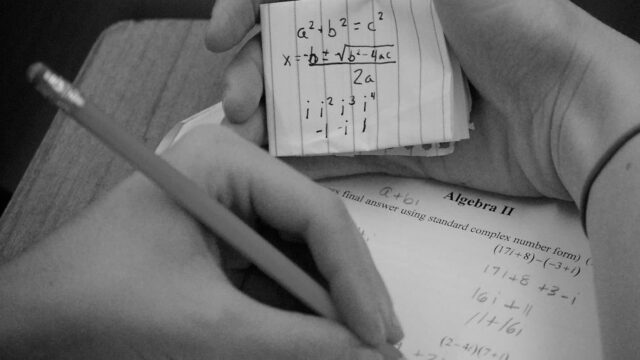 a² + b² = c²
x = -b ± √b²-4ac
2a
i i² i³ i⁴
-1 -i 1
a+bi
Algebra II
final answer using standard complex number form)
(17i+8)-(-3+i)
17i+8 +3-i
16i + 11
11+16i
(2-4i)(7+